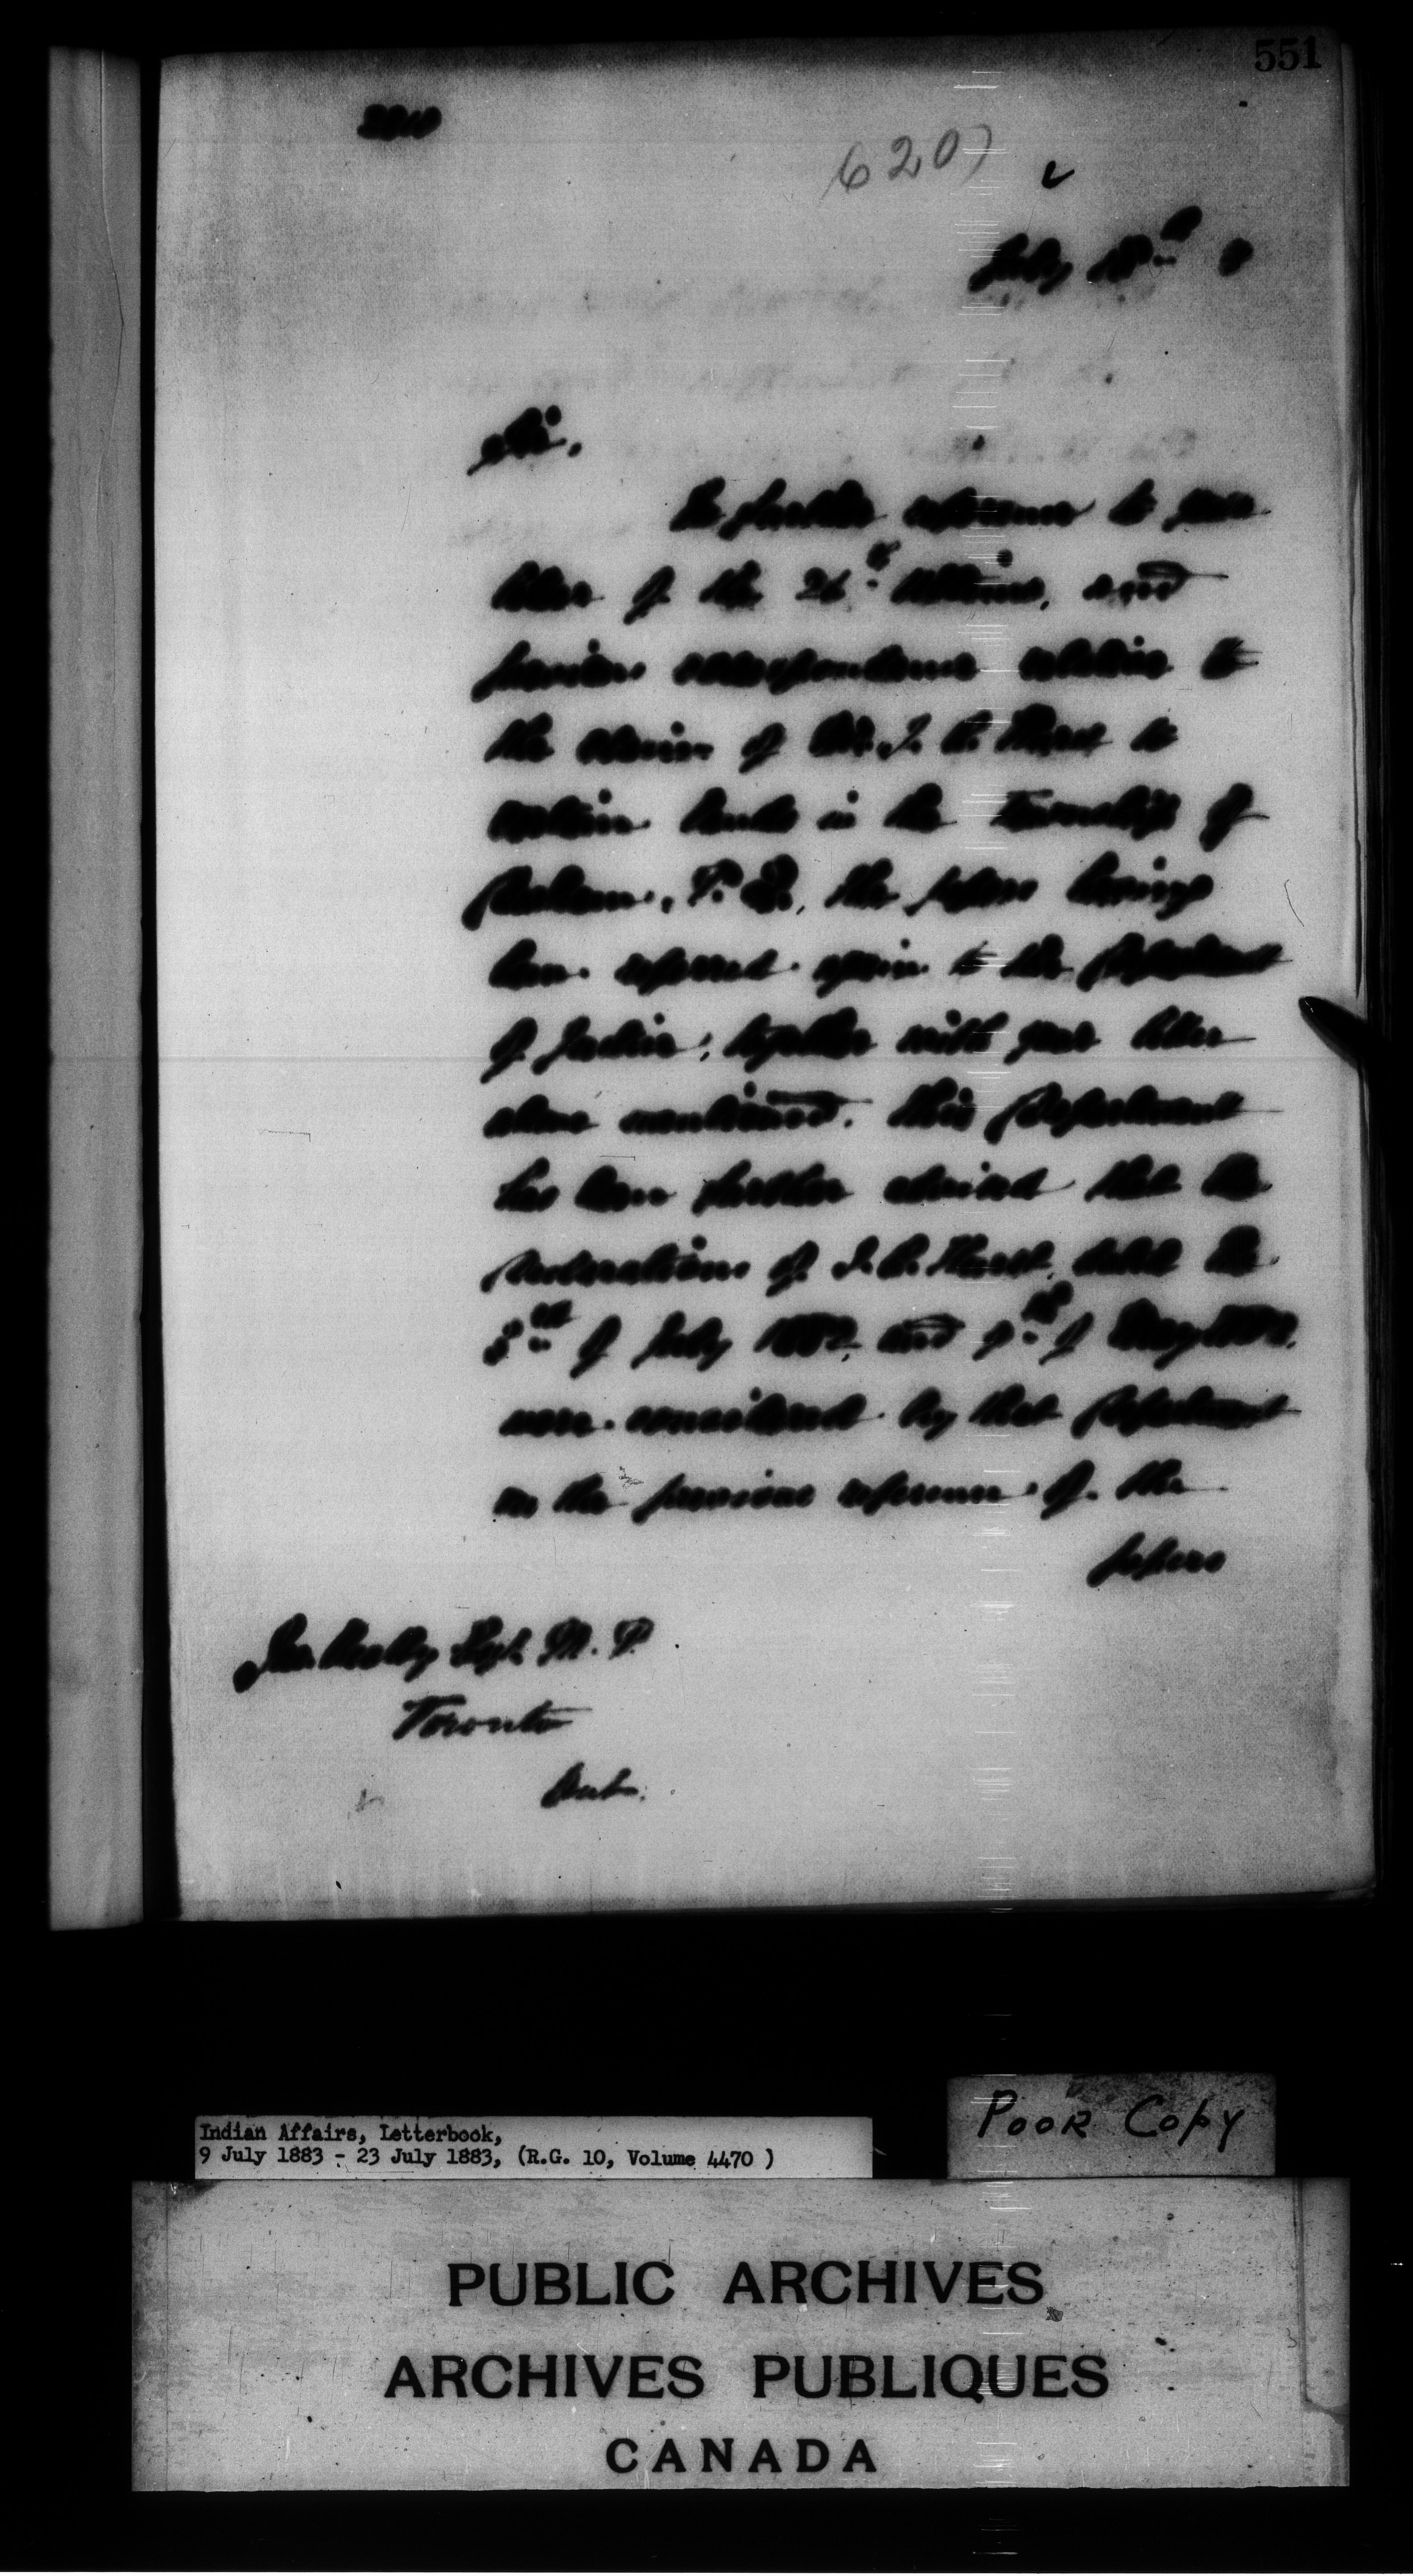 551
6207
July 18th 3
Sir,
In further reference to your
letter of the 26th ultimo, and
previous correspondence relative to
the claim of Mr. J. C. Hurst to
certain lands in the Township of
P. Q., the papers having
been referred again to the Department
of Justice, together with your letter
above mentioned, this Department
has been further advised that the
declarations of J. C. Hurst, dated the
3rd of July 1882, and 9th of May
were considered by that Department
on the previous reference of the
papers
Esq. M. P.
Toronto
Ont.
Poor Copy
Indian Affairs, Letterbook,
9 July 1883 - 23 July 1883, (R.G. 10, Volume 4470 )
PUBLIC ARCHIVES
ARCHIVES PUBLIQUES
CANADA